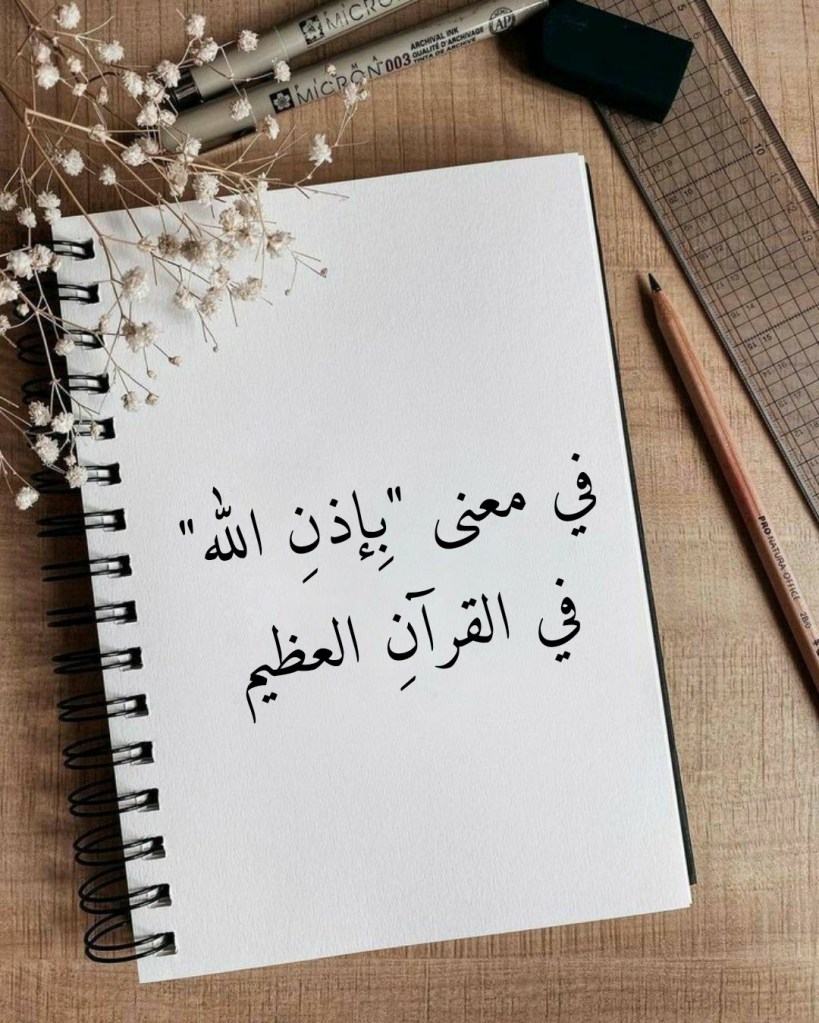 MICRON
MICRON 003 ARCHIVAL INK
QUALITÉ D'ARCHIVAGE
TINTA DE ARCHIVE
AP
في معنى "بِإذنِ الله"
في القرآنِ العظيم
PRO NATURA·OFFICE 2B/0